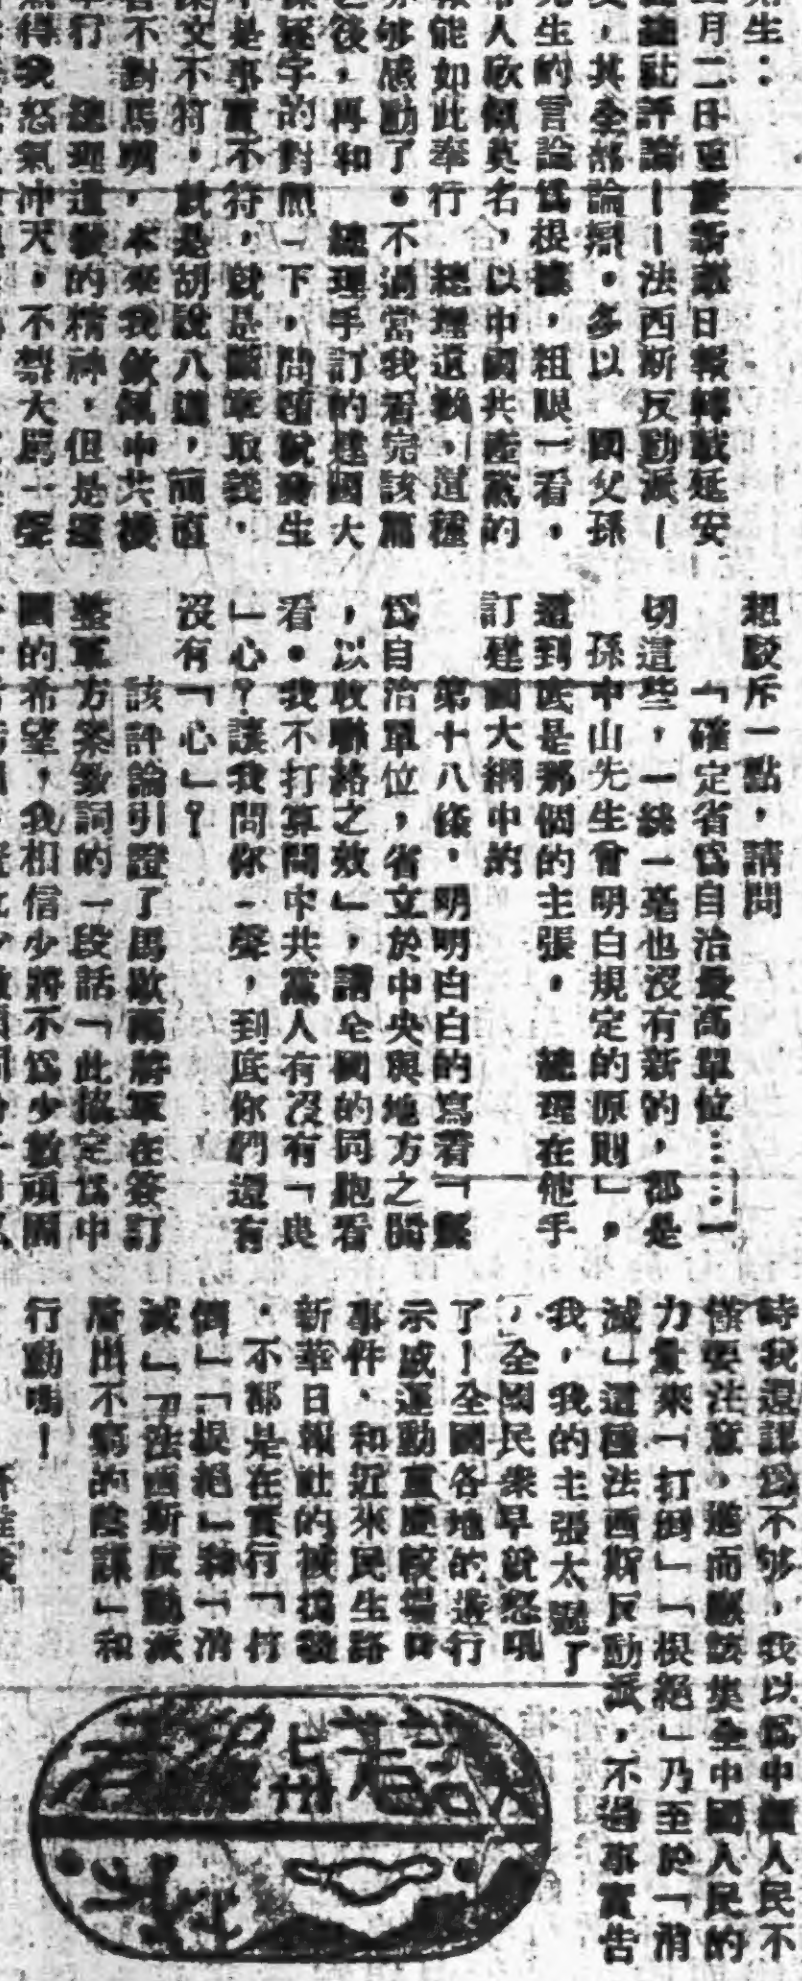 生：
月二日重慶新華日報轉載延安
社評論——法西斯反動派—
，其全部論據，多以　國父孫
生的言論爲根據，粗眼一看，
人欣佩莫名，以中國共產黨的
能如此奉行　總理遺教，這種
够感動了。不過當我看完該篇
之後，再和　總理手訂的建國大
逐字的對照一下，問題就發生
不是事實不符，就是斷章取義，
文不符，就是胡說八道，簡直
不對馬嘴，本來我欽佩中共機
行　總理遺教的精神，但是這
得我怒氣冲天，不禁大罵一聲
想駁斥一點，請問
「確定省爲自治最高單位……一
切這些，一絲一毫也沒有新的，都是
孫中山先生曾明白規定的原則」，
這到底是那個的主張，　總理在他手
訂建國大綱中的
第十八條，明明白白的寫着「縣
爲自治單位，省立於中央與地方之間
，以收聯絡之效」，請全國的同胞看
看。我不打算問中共黨人有沒有「良
」心？讓我問你一聲，到底你們還有
沒有「心」？
該評論引證了馬歇爾將軍在簽訂
整軍方案致詞的一段話「此協定爲中
國的希望，我相信少將不爲少數頑固
時我還認爲不够，我以爲中國人民不
僅要注意，進而應該集全中國人民的
力量來「打倒」「根絕」乃至於「消
滅」這種法西斯反動派，不過事實告
我，我的主張太遲了
，全國民衆早就怒吼
了！全國各地的遊行
示威運動重慶較場口
事件，和近來民生路
新華日報社的被搗毀
，不都是在實行「打
倒」「根絕」和「消
滅」「法西斯反動派
層出不窮的陰謀」和
行動嗎！